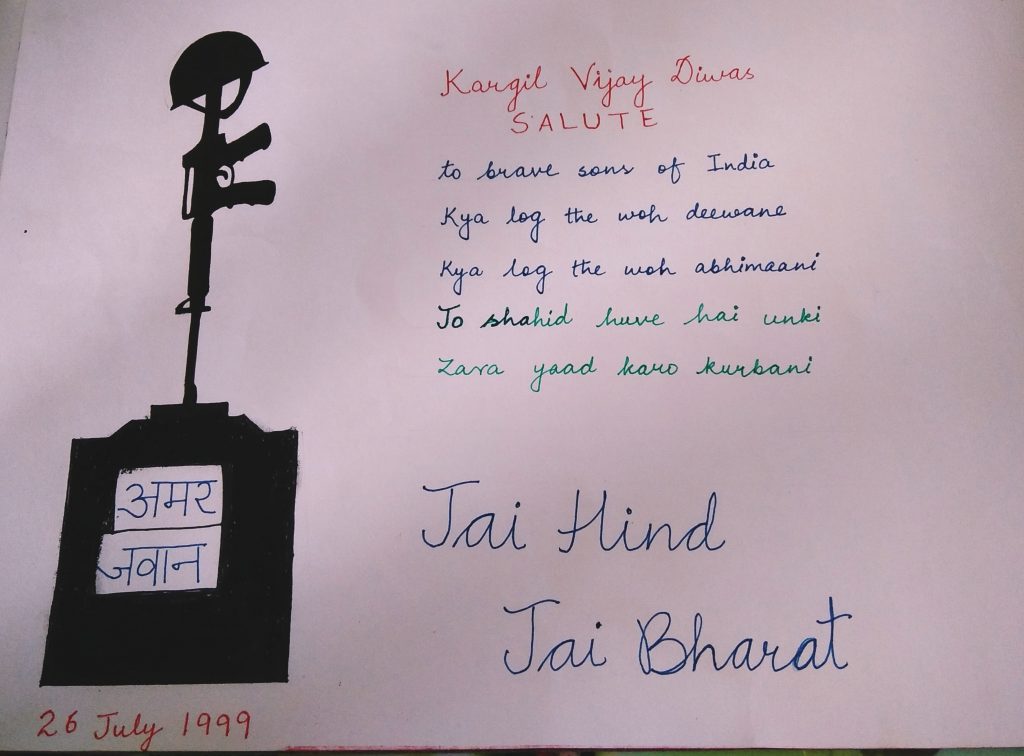 Kargil Vijay Diwas
SALUTE
to brave sons of India
Kya log the woh deewane
Kya log the woh abhimaani
Jo shahid huve hai unki
Zara yaad karo kurbani
अमर
जवान
Jai Hind
Jai Bharat
26 July 1999